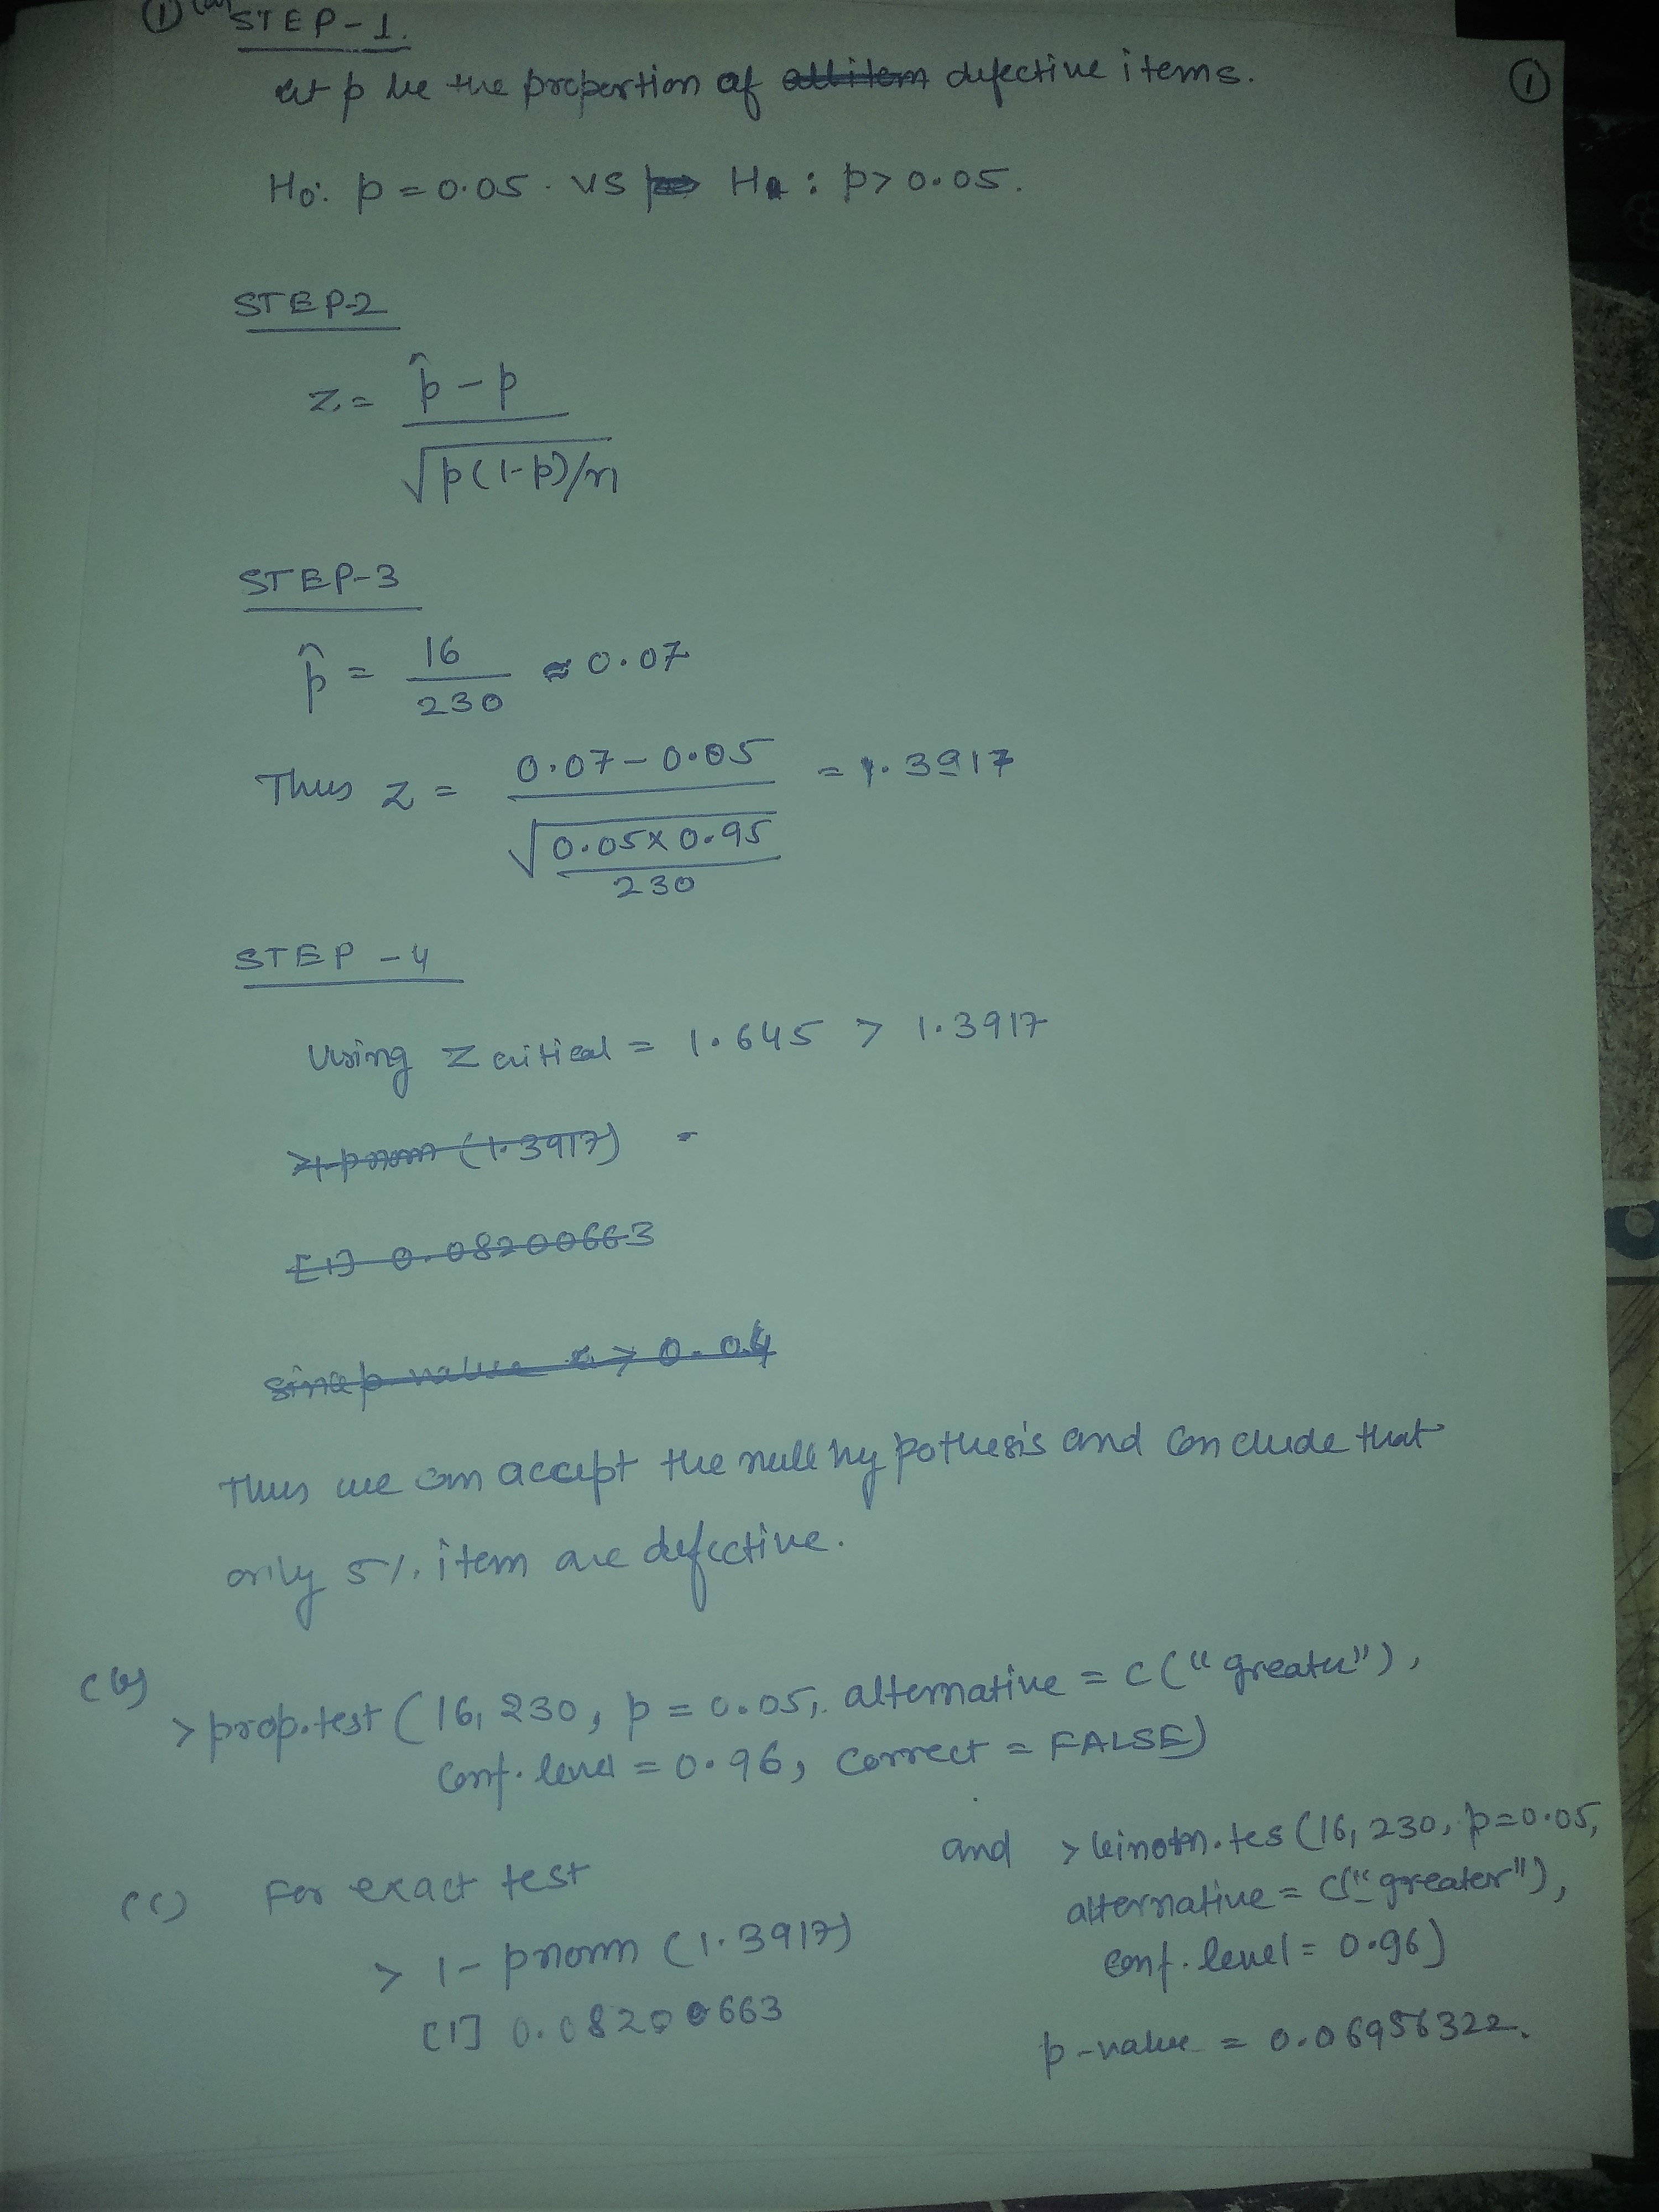 ① (a) STEP-1.
let p be the proportion of defective items.
①
H₀: p = 0.05. vs Hₐ : p > 0.05.
STEP-2
z = (p̂ - p) / √(p(1-p)/n)
STEP-3
p̂ = 16/230 ≈ 0.07
Thus z = (0.07 - 0.05) / √(0.05 x 0.95 / 230) = 1.3917
STEP - 4
Using z critical = 1.645 > 1.3917
1-pnorm (1.3917) =
[1] 0.08200663
since p-value > 0.04
Thus we can accept the null hypothesis and conclude that
only 5% item are defective.
(b)
> prop.test (16, 230, p = 0.05, alternative = c("greater"),
conf. level = 0.96, correct = FALSE)
(c) For exact test
> 1 - pnorm (1.3917)
[1] 0.08200663
and > binom.tes (16, 230, p=0.05,
alternative = c("greater"),
conf. level = 0.96)
p-value = 0.06956322.